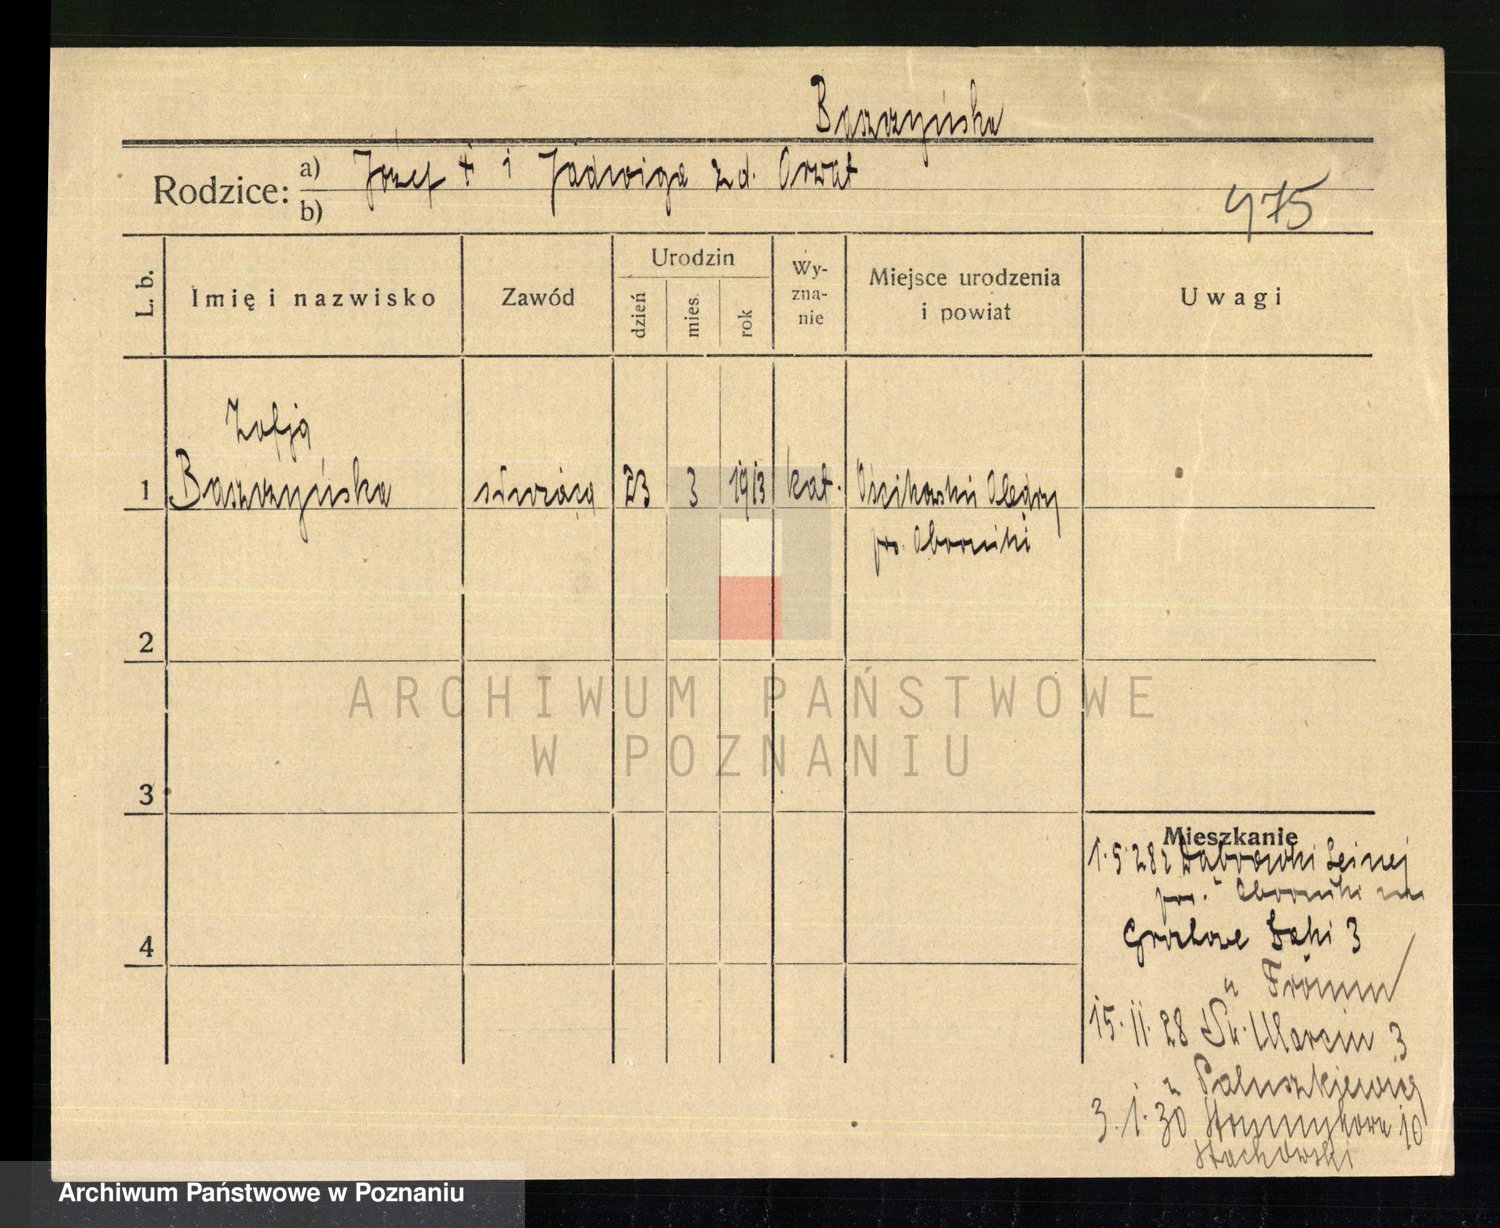 Baszczyńska
Rodzice: a) Józef + i Jadwiga zd. Orwat
b)
475
L. b.
Imię i nazwisko
Zawód
Urodzin
dzień
mies.
rok
Wy-
zna-
nie
Miejsce urodzenia
i powiat
Uwagi
Zofja
1 Baszczyńska służąca 23 3 1913 kat.
pow. Oborniki
2
3
4
Mieszkanie
1.5.28 z Dąbrówki Leśnej
pow. Oborniki na
Groblowe Łąki 3
u Fromm
15.11.28 Św. Marcin 3
u Paluszkiewicz
3.1.30 Strumykowa 10
Stachowski
ARCHIWUM PAŃSTWOWE
W POZNANIU
Archiwum Państwowe w Poznaniu